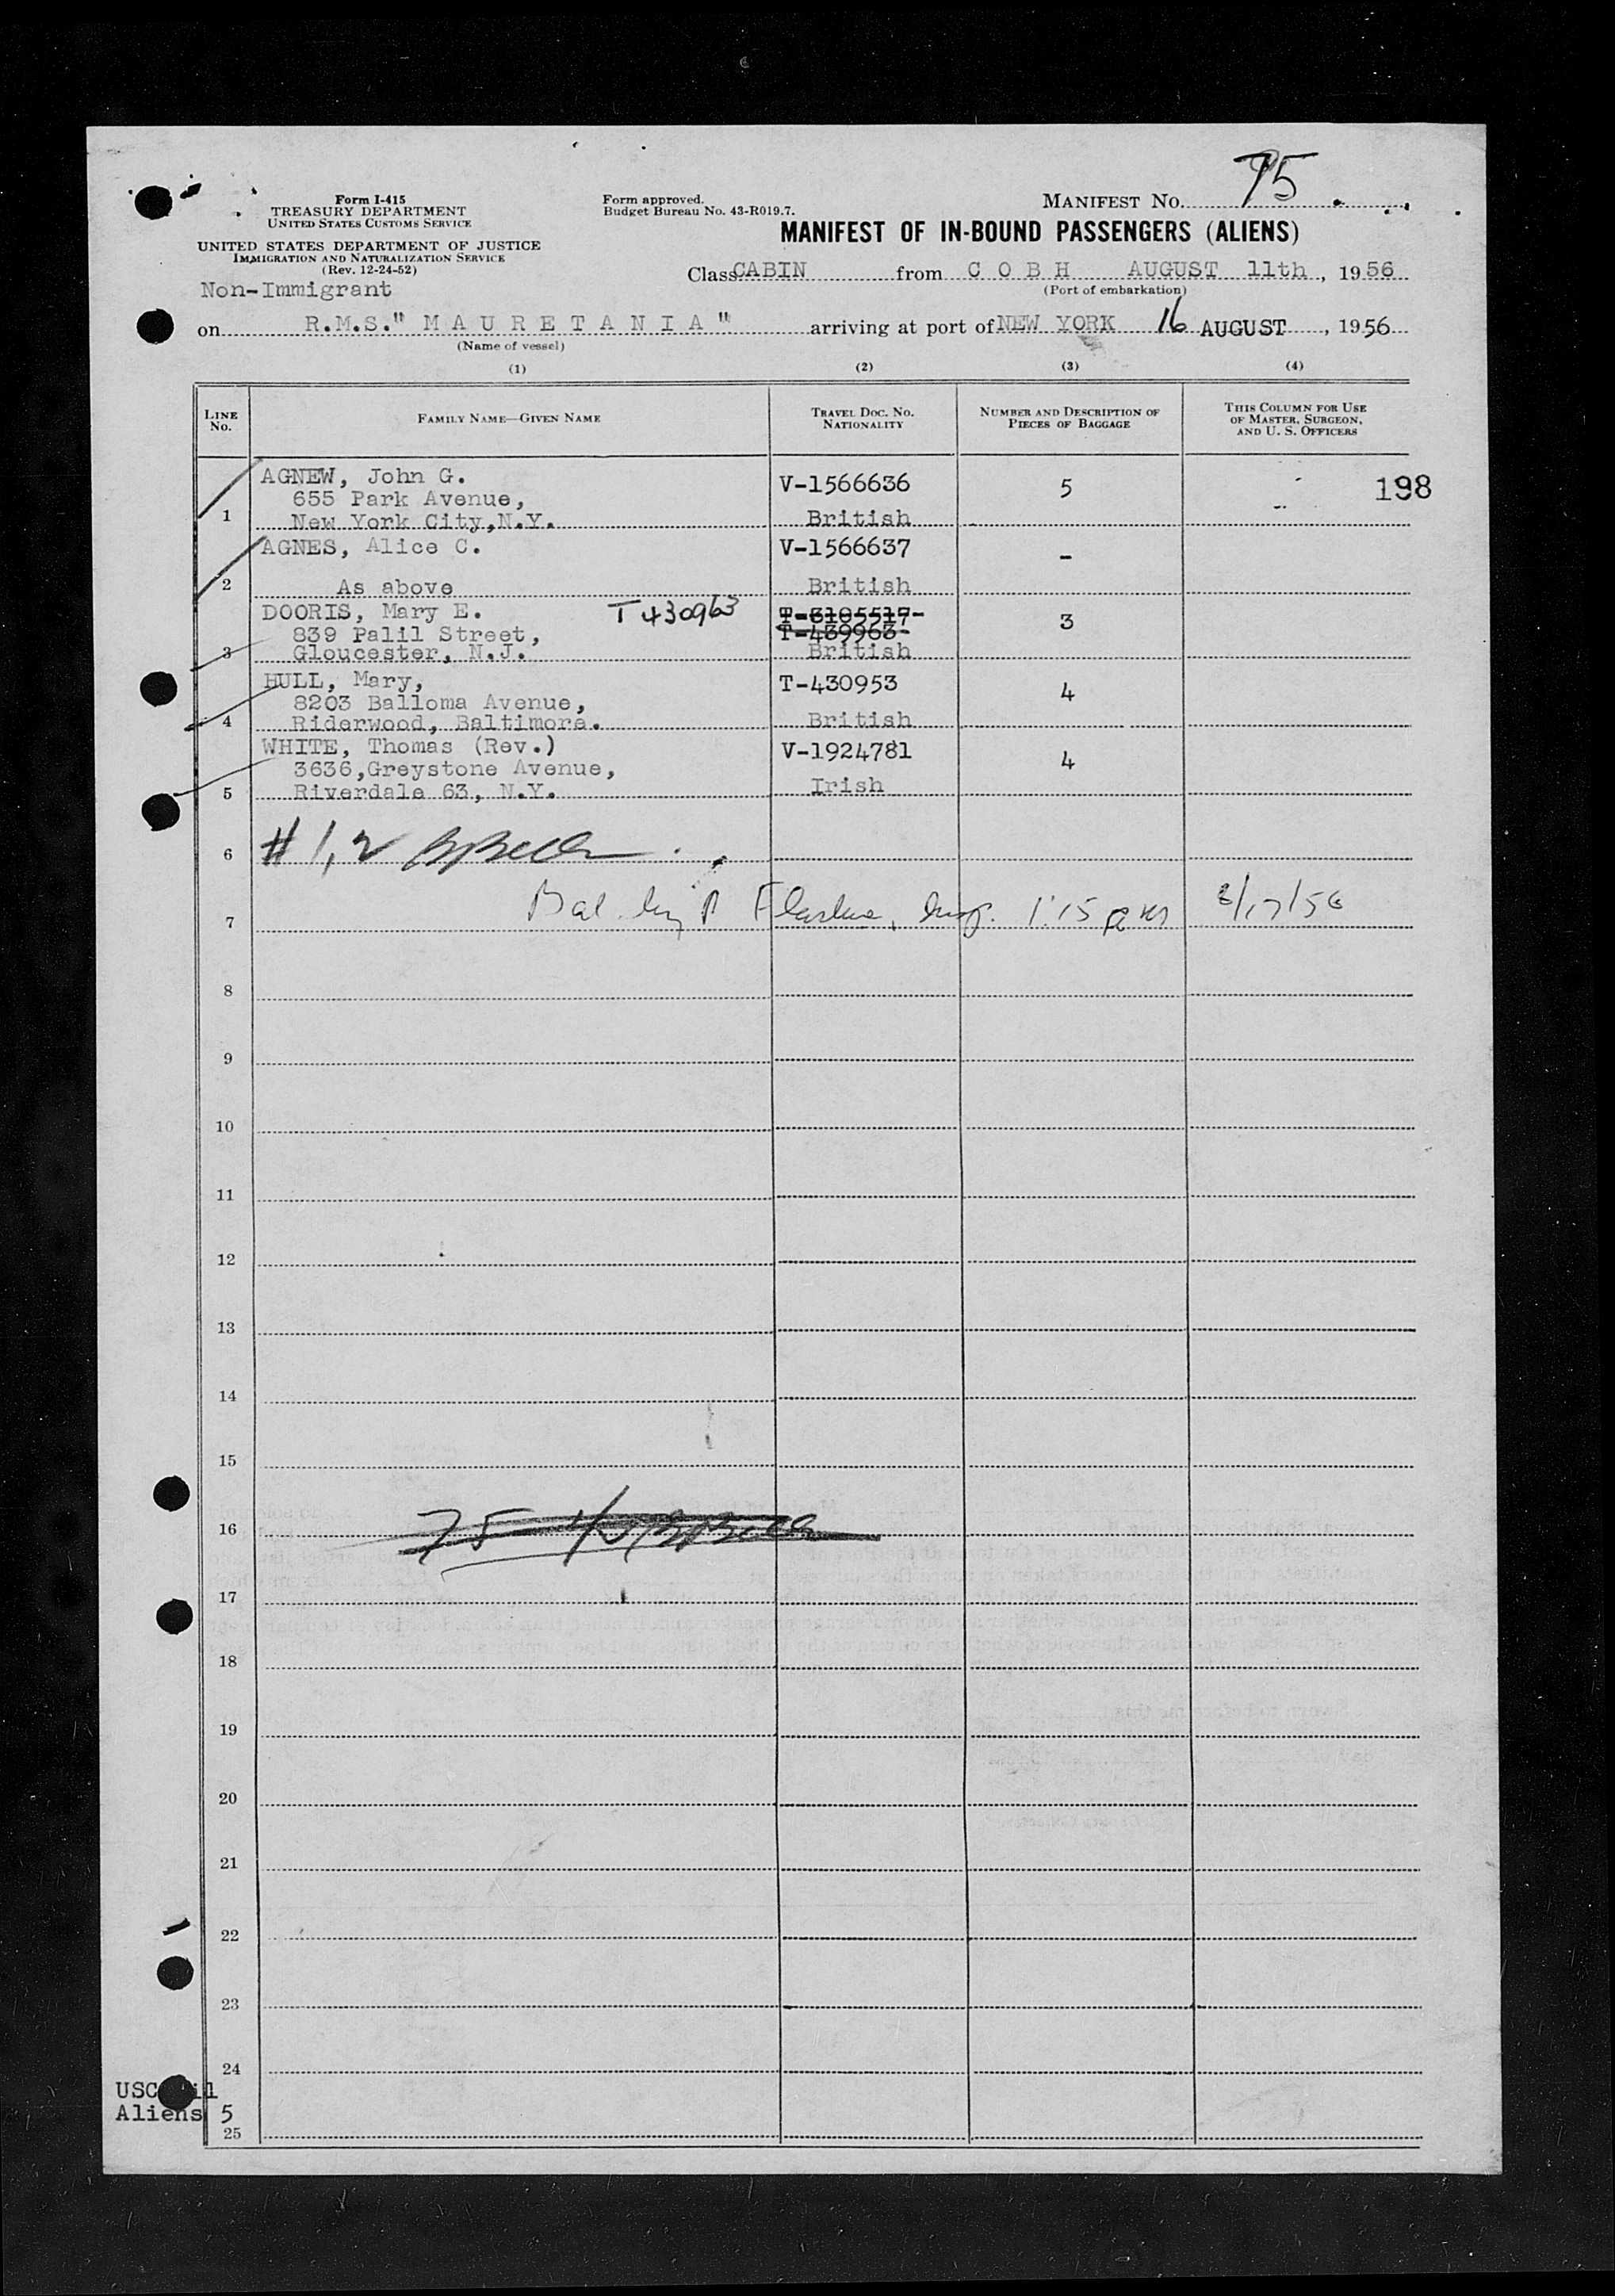 75
Form I-415
TREASURY DEPARTMENT
UNITED STATES CUSTOMS SERVICE
UNITED STATES DEPARTMENT OF JUSTICE
IMMIGRATION AND NATURALIZATION SERVICE
(Rev. 12-24-52)
Non-Immigrant
Form approved.
Budget Bureau No. 43-R019.7.
MANIFEST No.
MANIFEST OF IN-BOUND PASSENGERS (ALIENS)
Class CABIN from C O B H AUGUST 11th, 1956
(Port of embarkation)
on R.M.S." M A U R E T A N I A " arriving at port of NEW YORK 16 AUGUST, 1956
(Name of vessel)
(1) (2) (3) (4)
LINE No.
FAMILY NAME—GIVEN NAME
TRAVEL DOC. NO. NATIONALITY
NUMBER AND DESCRIPTION OF PIECES OF BAGGAGE
THIS COLUMN FOR USE OF MASTER, SURGEON, AND U. S. OFFICERS
AGNEW, John G. V-1566636 5 198
655 Park Avenue,
1 New York City,N.Y. British
AGNES, Alice C. V-1566637 -
2 As above British
DOORIS, Mary E. T430963 T-3105517- 3
839 Palil Street, T-439963-
3 Gloucester, N.J. British
HULL, Mary, T-430953 4
8203 Balloma Avenue,
4 Riderwood, Baltimore. British
WHITE, Thomas (Rev.) V-1924781 4
3636,Greystone Avenue,
5 Riverdale 63, N.Y. Irish
6 # 1, 2
7 Bal by 1:15 pm 8/17/56
8
9
10
11
12
13
14
15
16 75
17
18
19
20
21
22
23
24
USC Nil
Aliens 5
25